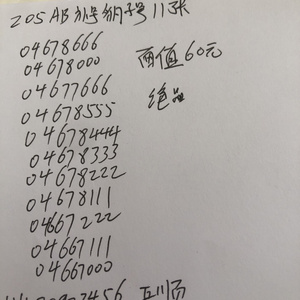 205AB 豹子号11张
04678666
04678000
04677666
04678555
04678444
04678333
04678222
04678111
04667222
04667111
04667000
面值60元
绝品